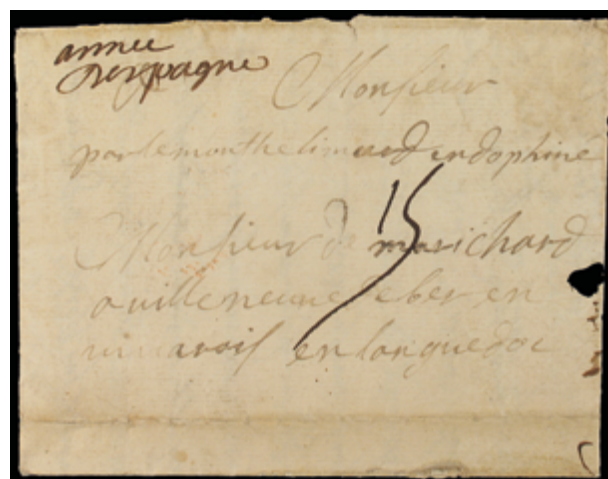 annee
despagne
Monsieur
par lemonthelimard en dophiné
15
Monsieur de marichard
a villeneuve de ber en
vivarois en languedoc